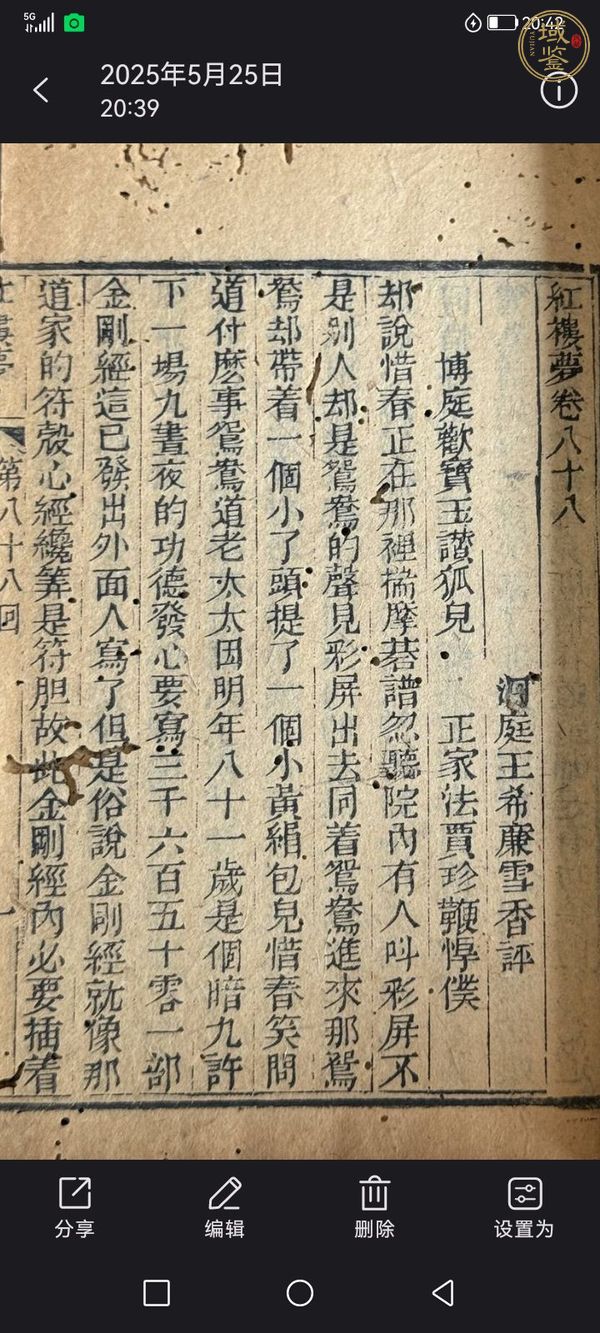 5G
20:42
域鉴
YUJIAN
2025年5月25日
20:39
紅樓夢卷八十八
洞庭王希廉雪香評
博庭歡寶玉讚孤兒 正家法賈珍鞭悍僕
却說惜春正在那裡揣摩碁譜忽聽院內有人叫彩屏不
是别人却是鴛鴦的聲見彩屏出去同着鴛鴦進來那鴛
鴦却帶着一個小了頭提了一個小黃絹包兒惜春笑問
道什麽事鴛鴦道老太太因明年八十一歲是個暗九許
下一場九晝夜的功德發心要寫三千六百五十零一部
金剛經這已發出外面人寫了但是俗說金剛經就像那
道家的符殻心經纔筭是符胆故此金剛經內必要插着
第八十八回
分享
编辑
删除
设置为